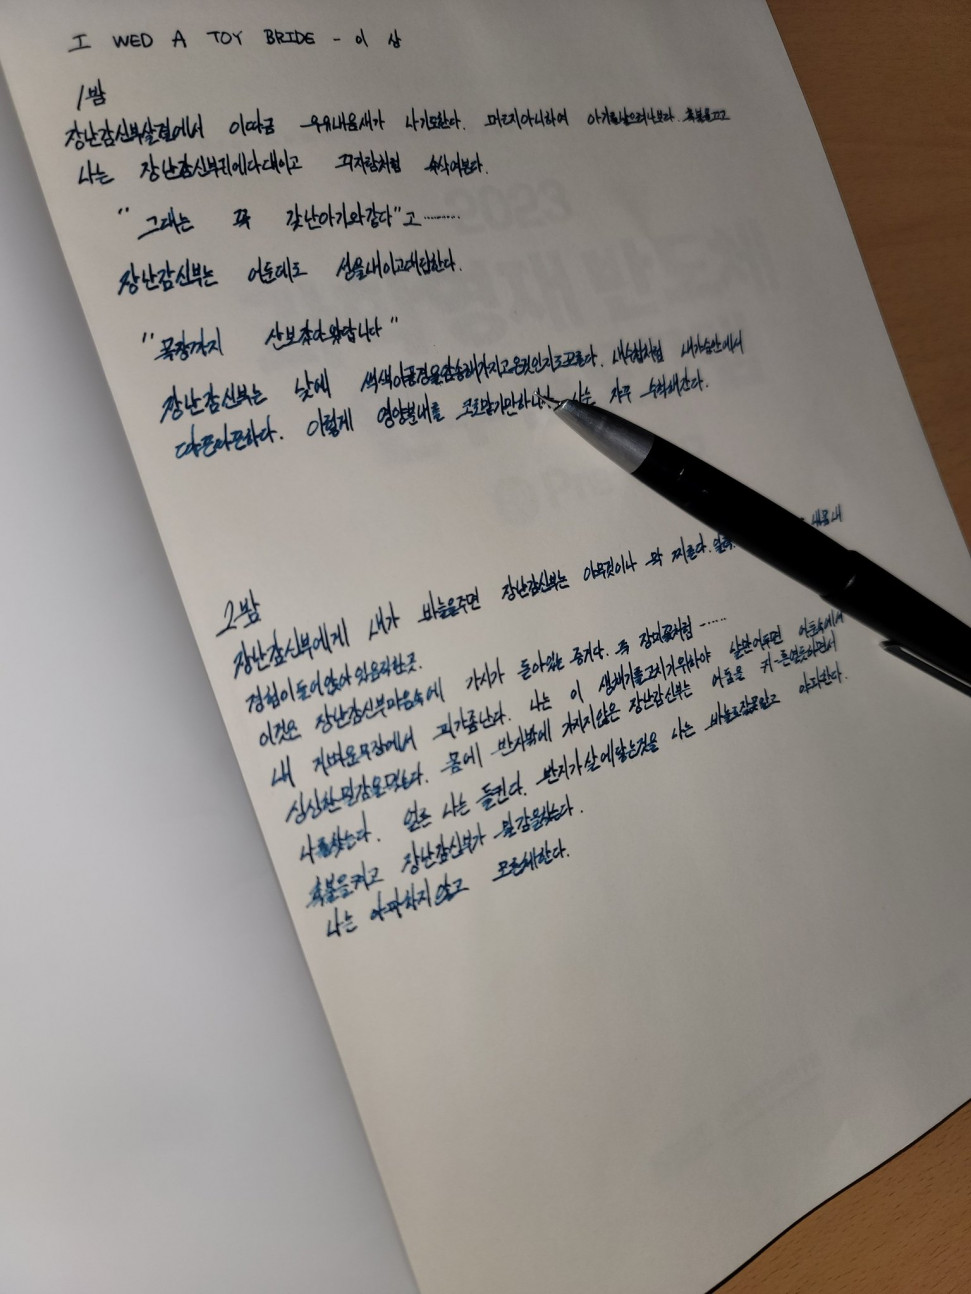 I WED A TOY BRIDE - 이 상
1밤
장난감신부살결에서 이따금 우유내음새가 나기도한다. 머리지아니하여 아기를낳으려나보다. 촉불을끄고
나는 장난감신부귀에다대이고 꾸지람처럼 속삭여본다.
"그대는 꼭 갓난아기와같다"고………
장난감신부는 어둔데도 성을내이고대답한다.
"목장까지 산보갔다왔답니다"
장난감신부는 낮에 색색이풍경을암송해가지고온것인지도모른다. 내수첩처럼 내가슴안에서
따끈따끈하다. 이렇게 영양분내를 코로맡기만하니까 나는 자꾸 수척해간다.
2밤
장난감신부에게 내가 바늘을주면 장난감신부는 아무것이나 막 찌른다.
경험이들어앉아있음직한곳.
이것은 장난감신부마음속에 가시가 돋아있는 증거다. 즉 장미꽃처럼 ……
내 거벼운무장에서 피가좀난다. 나는 이 생채기를고치기위하야 날만어두면 어둠속에서
싱싱한밀감을먹는다. 몸에 반지밖에 가지지않은 장난감신부는 어둠을 커-튼열듯하면서
나를찾는다. 얼른 나는 들킨다. 반지가살에닿는것을 나는 바늘로잘못알고 아파한다.
촉불을켜고 장난감신부가 밀감을찾는다.
나는 아파하지않고 모른체한다.